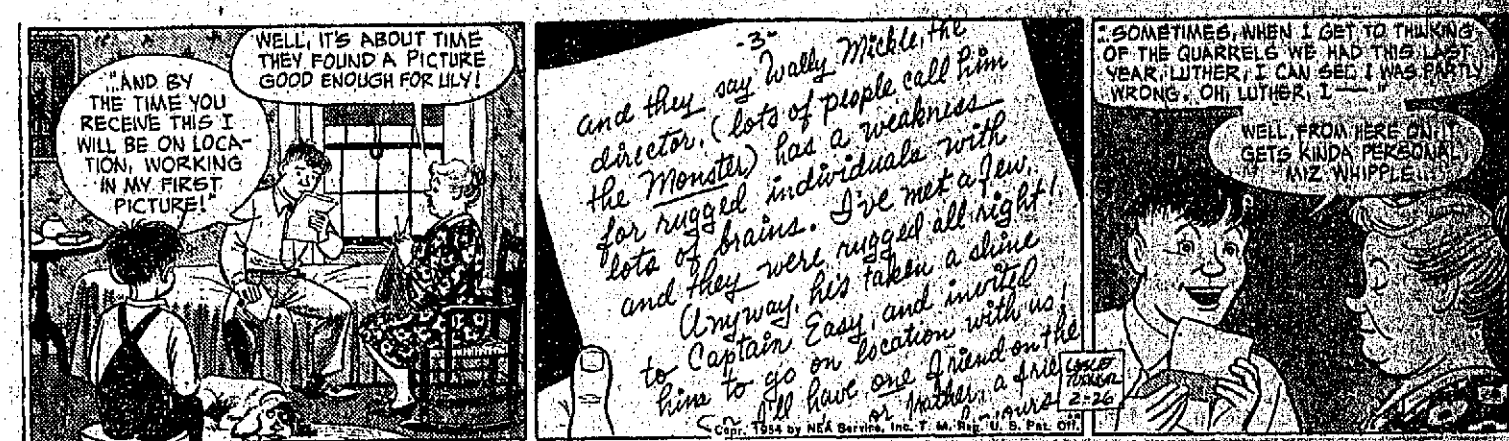 "AND BY
THE TIME YOU
RECEIVE THIS I
WILL BE ON LOCA-
TION, WORKING
IN MY FIRST
PICTURE!"
WELL, IT'S ABOUT TIME
THEY FOUND A PICTURE
GOOD ENOUGH FOR LILY!
-3-
and they say Wally Mickle, the
director, (lots of people call him
the Monster) has a weakness
for rugged individuals with
lots of brains. I've met a few,
and they were rugged all right!
Anyway, he's taken a shine
to Captain Easy, and invited
him to go on location with us!
I'll have one friend on the
or rather, a frie
yours
Copr. 1954 by NEA Service, Inc. T. M. Reg. U. S. Pat. Off.
"SOMETIMES, WHEN I GET TO THINKING
OF THE QUARRELS WE HAD THIS LAST
YEAR, LUTHER, I CAN SEE I WAS PARTLY
WRONG. OH, LUTHER, I — "
WELL, FROM HERE ON IT
GETS KINDA PERSONAL,
MIZ WHIPPLE...
LESLIE
TURNER
2-26